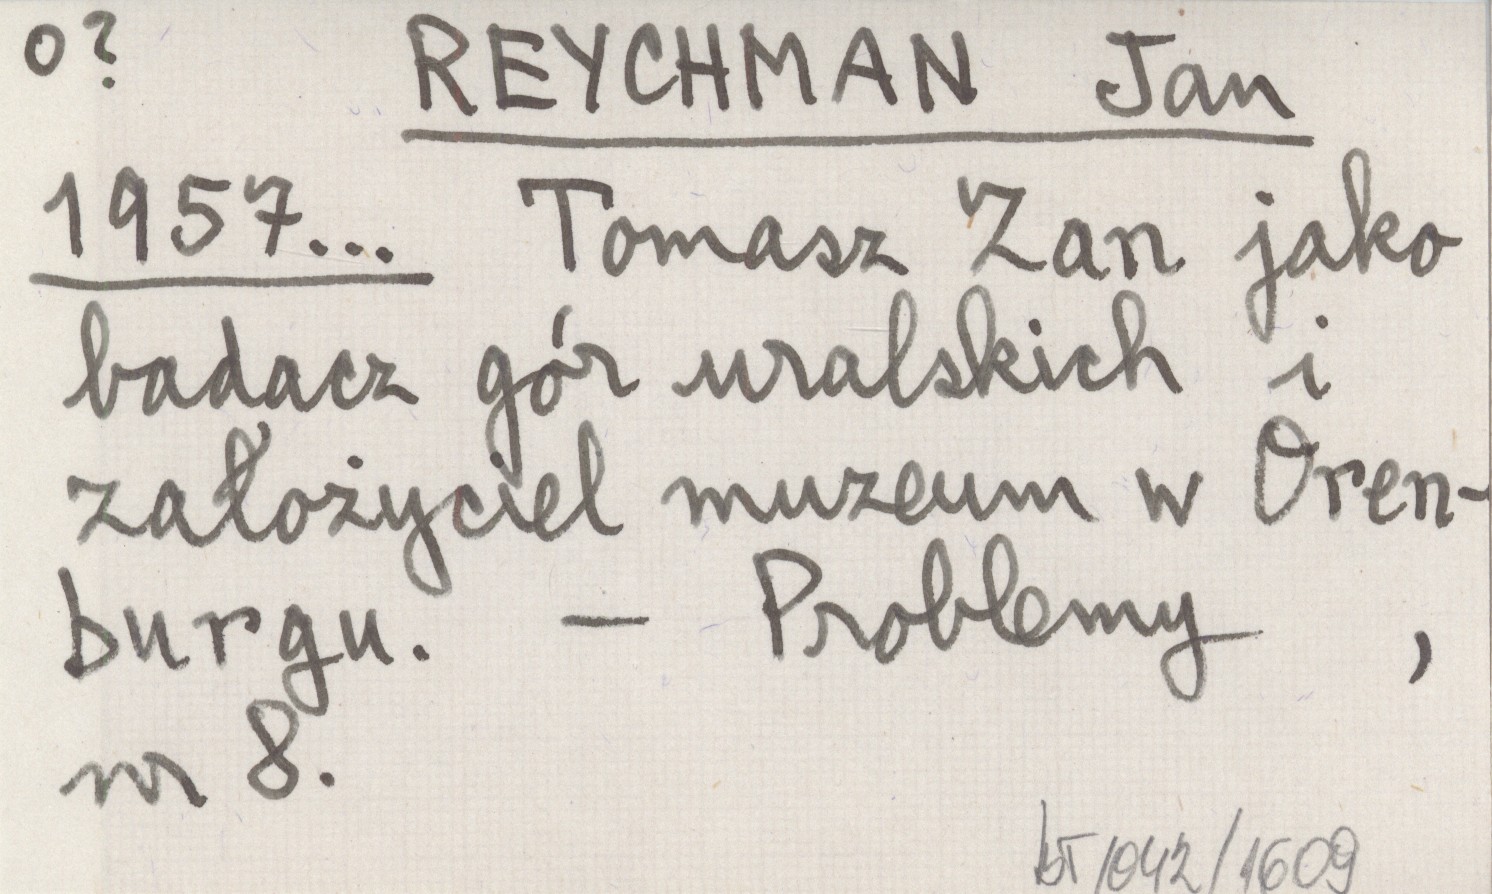 o? REYCHMAN Jan
1957... Tomasz Zan jako
badacz gór uralskich i
założyciel muzeum w Oren-
burgu. — Problemy ,
nr 8.
bT 1042/1609